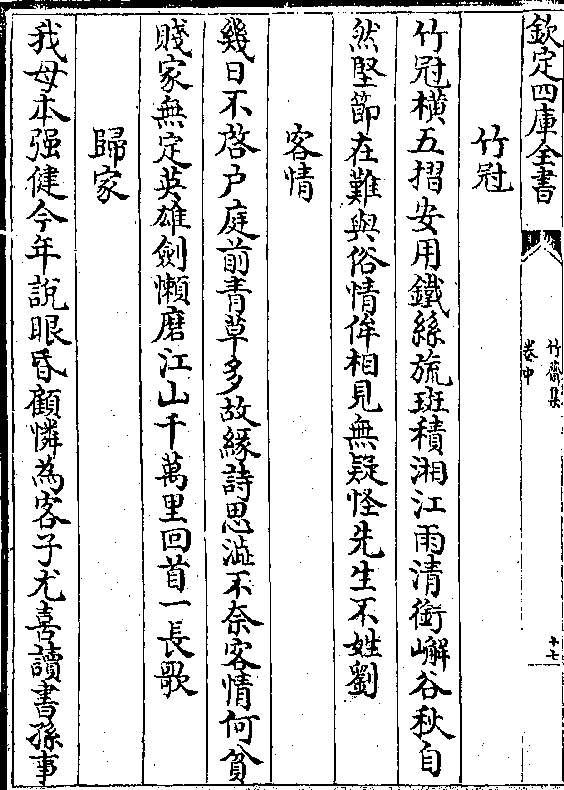 欽定四庫全書
竹齋集
卷中
十七
竹冠
竹冠橫五摺安用鐵絲旒斑積湘江雨清銜嶰谷秋自
然堅節在難與俗情侔相見無疑怪先生不姓劉
客情
幾日不啓戶庭前青草多故緣詩思澁不奈客情何貧
賤家無定英雄劍懶磨江山千萬里回首一長歌
歸家
我母本强健今年說眼昏顧憐為客子尤喜讀書孫事